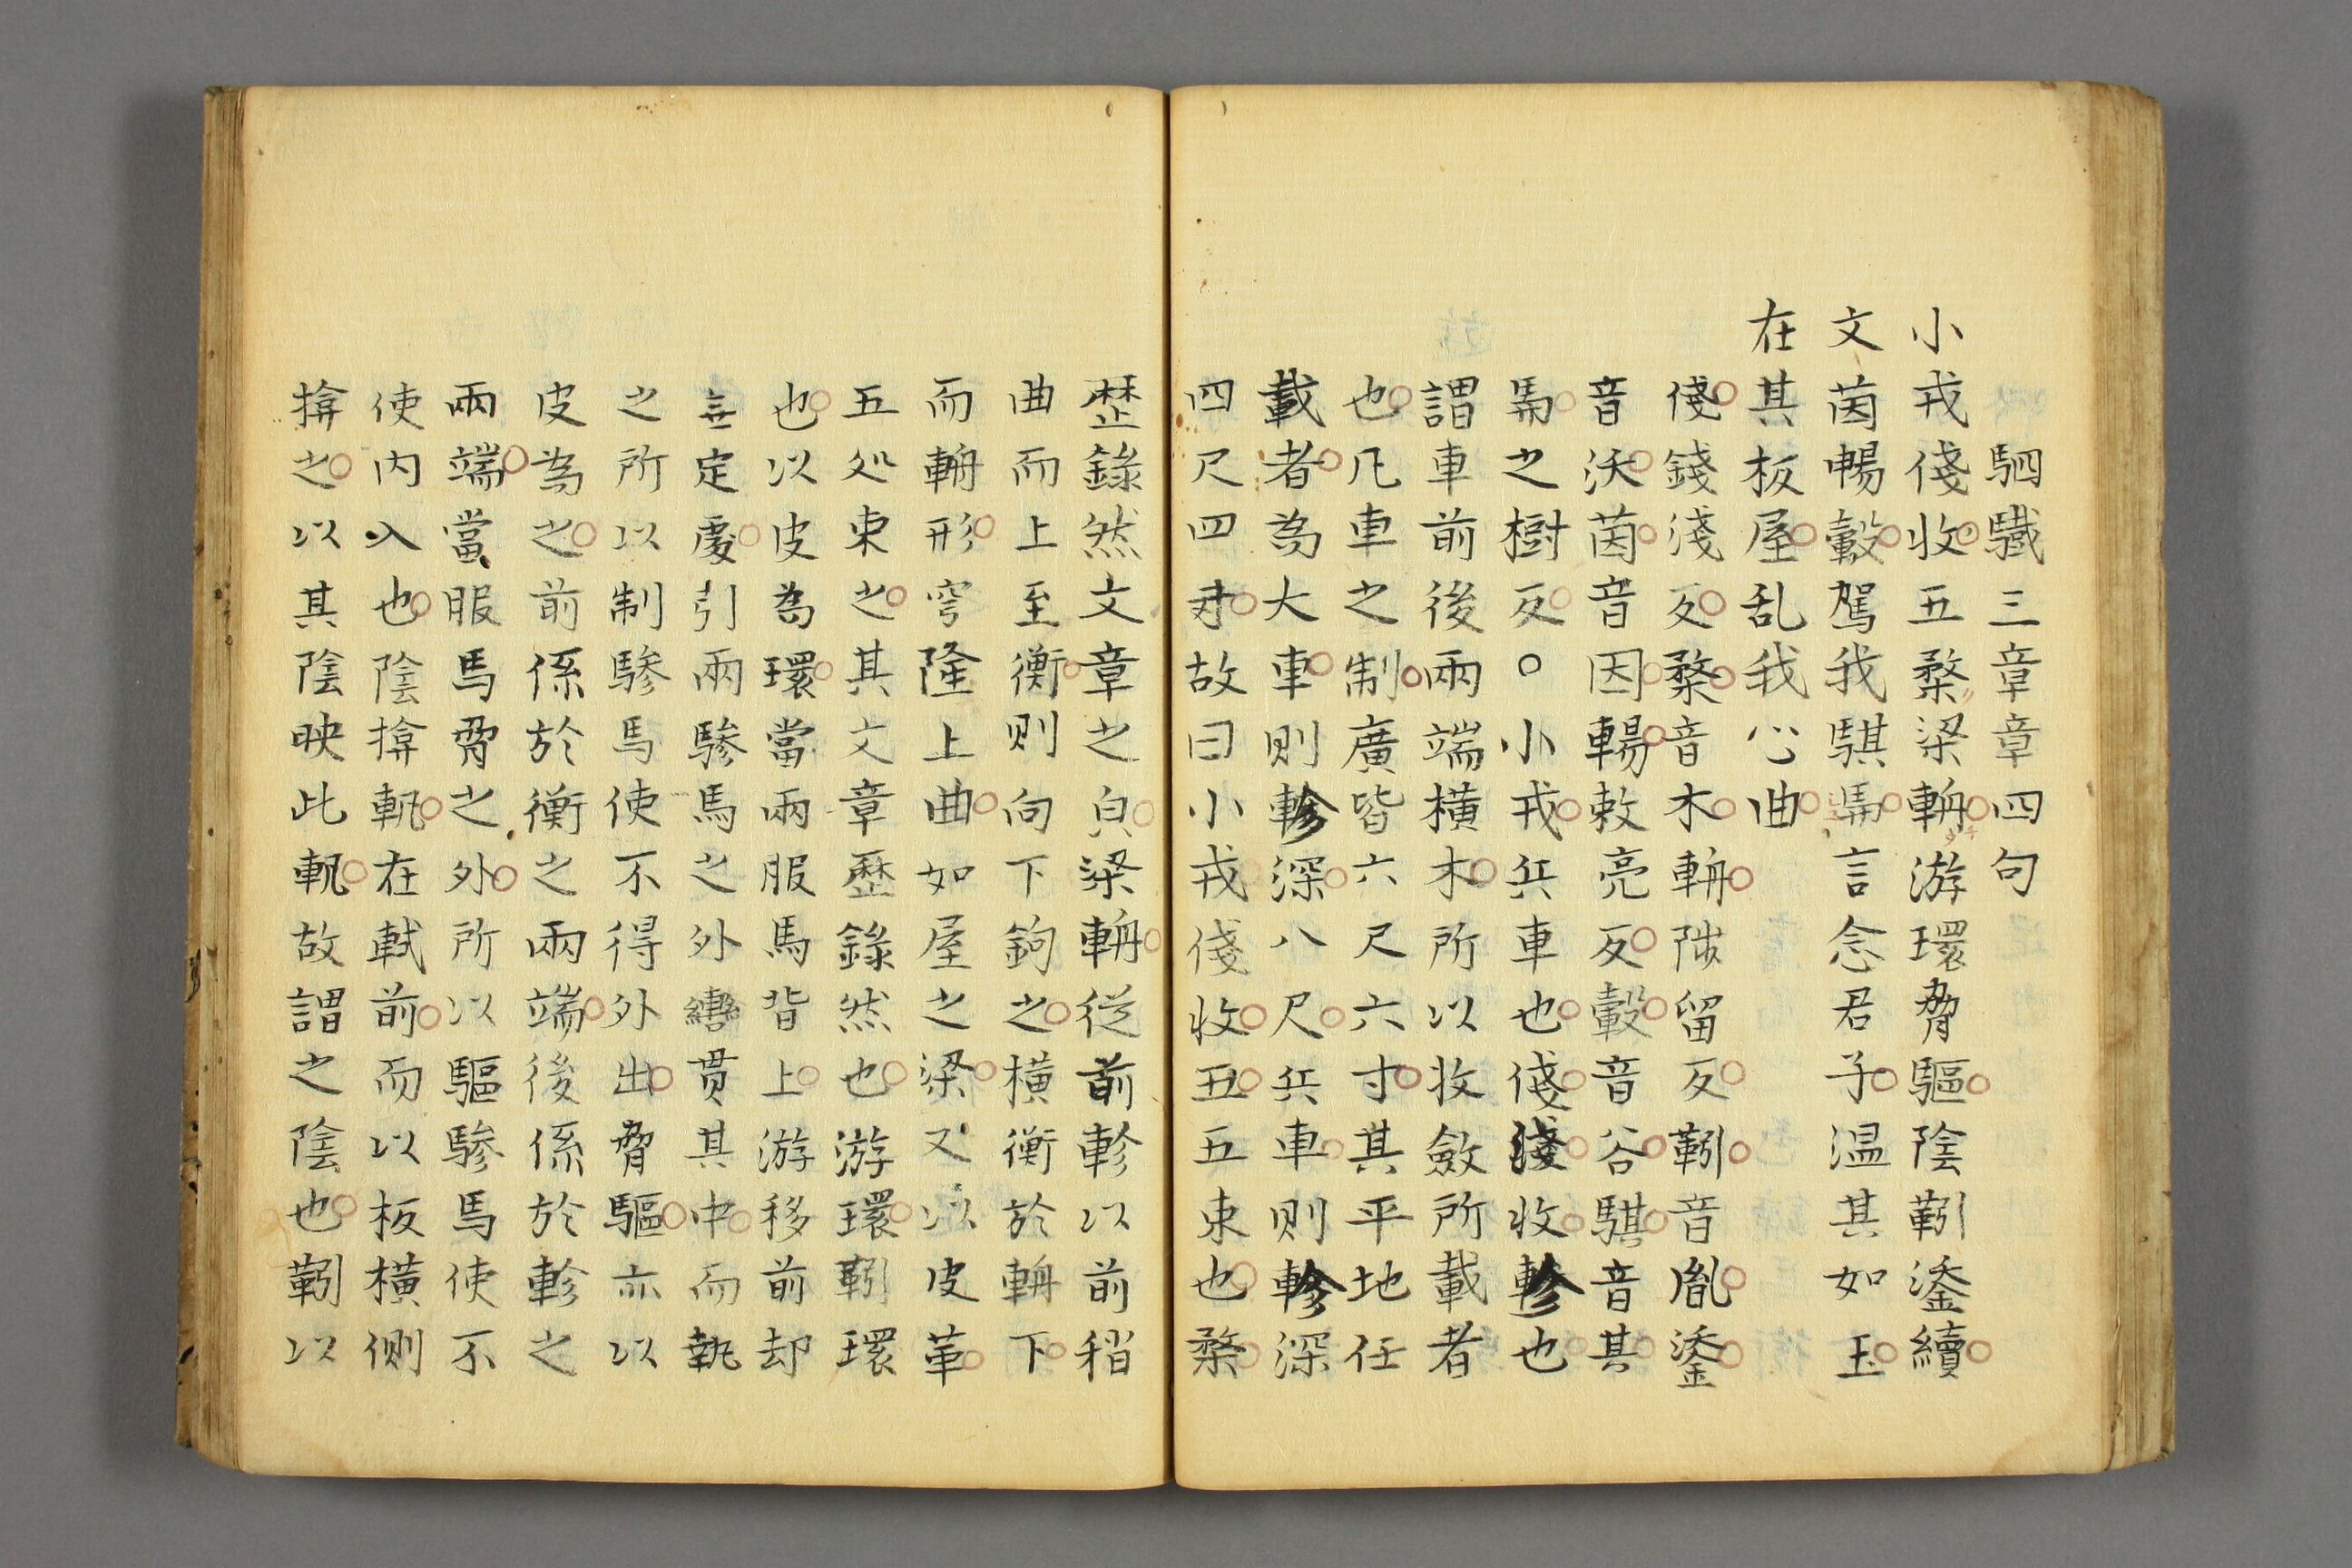 駟驖三章章四句
小戎俴收五楘梁輈游環脅驅陰靷鋈續
文茵暢轂駕我騏馵言念君子温其如玉
在其板屋乱我心曲
俴錢淺反楘音木輈陟留反靷音胤鋈
音沃茵音因暢敕亮反轂音谷騏音其
馵之樹反○小戎兵車也俴淺收軫也
謂車前後兩端橫木所以收斂所載者
也凡車之制廣皆六尺六寸其平地任
載者為大車則軫深八尺兵車則軫深
四尺四寸故曰小戎俴收五五束也楘
歷錄然文章之㒵梁輈從前軫以前稍
曲而上至衡則向下鉤之橫衡於輈下
而輈形穹隆上曲如屋之梁又以皮革
五処束之其文章歷錄然也游環靷環
也以皮為環當兩服馬背上游移前却
無定處引兩驂馬之外轡貫其中而執
之所以制驂馬使不得外出脅驅亦以
皮為之前係於衡之兩端後係於軫之
兩端當服馬脅之外所以驅驂馬使不
使內入也陰揜軓在軾前而以板橫側
揜之以其陰映此軓故謂之陰也靷以